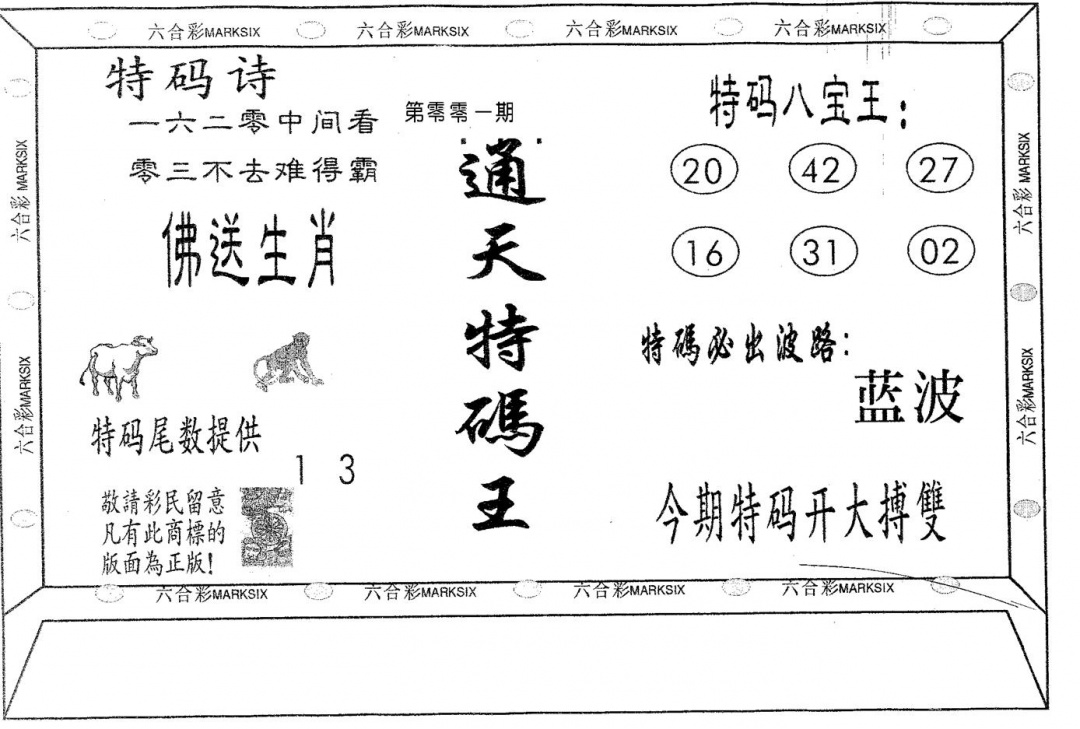 六合彩MARKSIX 六合彩MARKSIX 六合彩MARKSIX 六合彩MARKSIX
特码诗
一六二零中间看
零三不去难得霸
佛送生肖
特码尾数提供
1 3
敬請彩民留意
凡有此商標的
版面為正版!
第零零一期
通天特碼王
特码八宝王:
20 42 27
16 31 02
特碼必出波路:
蓝波
今期特码开大搏雙
六合彩 MARKSIX
六合彩MARKSIX
六合彩 MARKSIX
六合彩MARKSIX
六合彩MARKSIX 六合彩MARKSIX 六合彩MARKSIX 六合彩MARKSIX